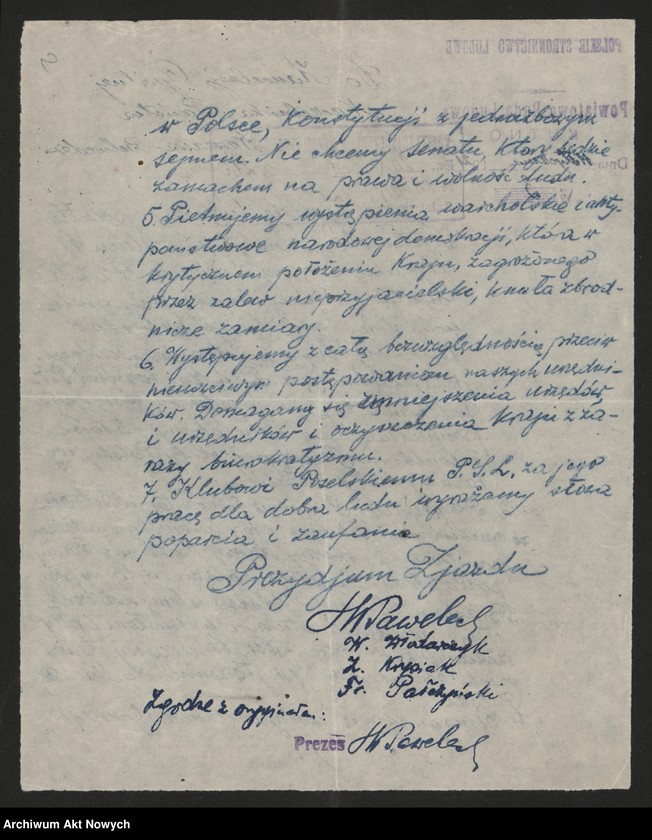 w Polsce, Konstytucji z jednoizbowym
sejmem. Nie chcemy senatu, który będzie
zamachem na prawa i wolność ludu.
5. Pietnujemy wystąpienia warcholskie i anty-
państwowe narodowej demokracji, która w
krytycznem położeniu Kraju, zagrożonego
przez zalew nieprzyjacielski, knuła zbrod-
nicze zamiary.
6. Występujemy z całą bezwzględnością przeciw
nieuczciwym postępowaniom naszych urzędni-
ków. Domagamy się zmniejszenia urzędów
i urzędników i oczyszczenia Kraju z za-
razy biurokratyzmu.
7. Klubowi Poselskiemu P.S.L. za jego
pracę dla dobra ludu wyrażamy słowa
poparcia i zaufania
Prezydjum Zjazdu
Pawelec
W. Włodarczyk
Z. Krysiak
Fr. Pałczyński
Zgodne z oryginałem:
Prezes Pawelec
POLSKIE STRONNICTWO LUDOWE
Powiatowa Rada Ludowa
Archiwum Akt Nowych